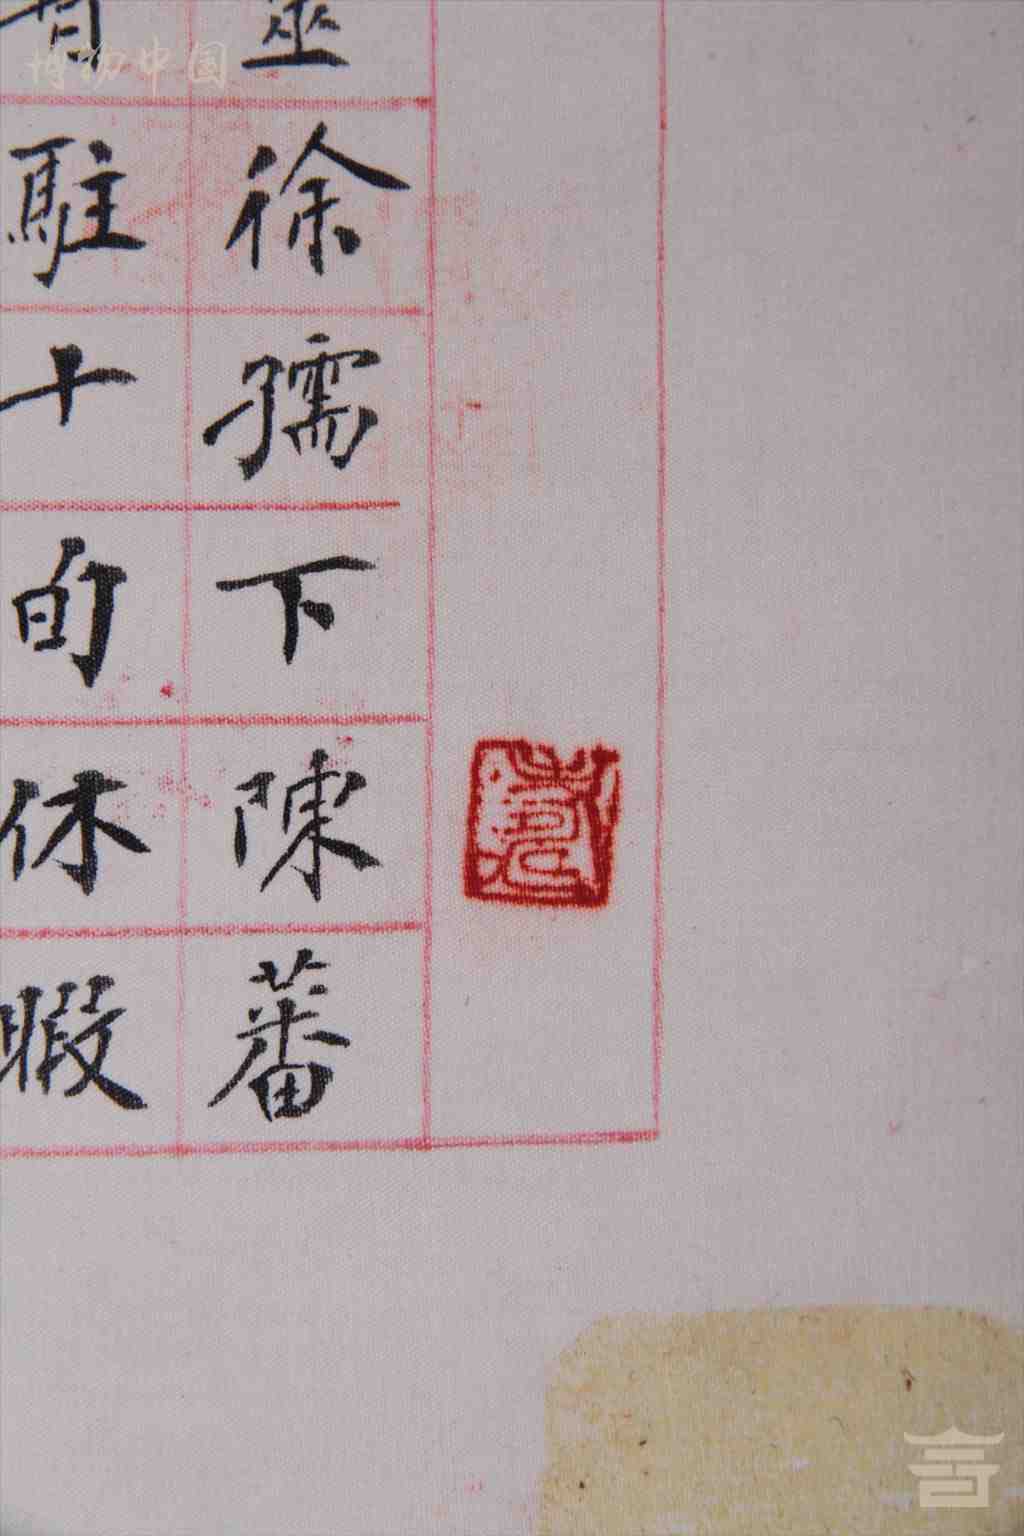 徐孺下陳蕃
駐十旬休暇
博物中国